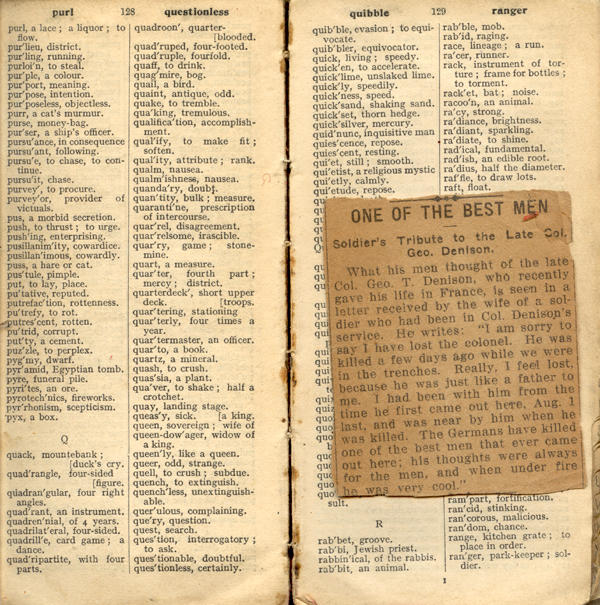 purl 128 questionless
purl, a lace; a liquor; to
flow.
pur'lieu, district.
pur'ling, running.
purloi'n, to steal.
pur'ple, a colour.
pur'port, meaning.
pur'pose, intention.
pur'poseless, objectless.
purr, a cat's murmur.
purse, money-bag.
pur'ser, a ship's officer.
pursu'ance, in consequence
pursu'ant, following.
pursu'e, to chase, to con-
tinue.
pursu'it, chase.
purvey', to procure.
purvey'or, provider of
victuals.
pus, a morbid secretion.
push, to thrust; to urge.
push'ing, enterprising.
pusillanim'ity, cowardice.
pusillan'imous, cowardly.
puss, a hare or cat.
pus'tule, pimple.
put, to lay, place.
pu'tative, reputed.
putrefac'tion, rottenness.
pu'trefy, to rot.
putres'cent, rotten.
pu'trid, corrupt.
put'ty, a cement.
puz'zle, to perplex.
pyg'my, dwarf.
pyr'amid, Egyptian tomb.
pyre, funeral pile.
pyri'tes, an ore.
pyrotech'nics, fireworks.
pyr'rhonism, scepticism.
pyx, a box.
Q
quack, mountebank;
[duck's cry.
quad'rangle, four-sided
[figure.
quadran'gular, four right
angles.
quad'rant, an instrument.
quadren'nial, of 4 years.
quadrilat'eral, four-sided.
quadrill'e, card game; a
dance.
quad'ripartite, with four
parts.
quadroon', quarter-
[blooded.
quad'ruped, four-footed.
quad'ruple, fourfold.
quaff, to drink.
quag'mire, bog.
quail, a bird.
quaint, antique, odd.
quake, to tremble.
qua'king, tremulous.
qualifica'tion, accomplish-
ment.
qual'ify, to make fit;
soften.
qual'ity, attribute; rank.
qualm, nausea.
qualm'ishness, nausea.
quanda'ry, doubt.
quan'tity, bulk; measure,
quaranti'ne, prescription
of intercourse.
quar'rel, disagreement.
quar'relsome, irascible.
quar'ry, game; stone-
mine.
quart, a measure.
quar'ter, fourth part;
mercy; district.
quarterdeck', short upper
deck. [troops.
quar'tering, stationing
quar'terly, four times a
year.
quar'termaster, an officer.
quar'to, a book.
quartz, a mineral.
quash, to crush.
quas'sia, a plant.
qua'ver, to shake; half a
crotchet.
quay, landing stage.
queas'y, sick. [a king.
queen, sovereign; wife of
queen-dow'ager, widow of
a king.
queen'ly, like a queen.
queer, odd, strange.
quell, to crush; subdue.
quench, to extinguish.
quench'less, unextinguish-
able.
quer'ulous, complaining.
que'ry, question.
quest, search.
ques'tion, interrogatory;
to ask.
ques'tionable, doubtful.
ques'tionless, certainly.
quibble 129 ranger
quib'ble, evasion; to equi-
vocate.
quib'bler, equivocator.
quick, living; speedy.
quick'en, to accelerate.
quick'lime, unslaked lime.
quick'ly, speedily.
quick'ness, speed.
quick'sand, shaking sand.
quick'set, thorn hedge.
quick'silver, mercury.
quid'nunc, inquisitive man
quies'cence, repose.
quies'cent, resting.
qui'et, still; smooth.
qui'etist, a religious mystic
qui'etly, calmly.
qui'etude, repose.
sult.
R
rab'bet, groove.
rab'bi, Jewish priest.
rabbin'ical, of the rabbis.
rab'bit, an animal.
rab'ble, mob.
rab'id, raging.
race, lineage; a run.
ra'cer, runner.
rack, instrument of tor-
ture; frame for bottles;
to torment.
rack'et, bat; noise.
racoo'n, an animal.
ra'cy, strong.
ra'diance, brightness.
ra'diant, sparkling.
ra'diate, to shine.
rad'ical, fundamental.
rad'ish, an edible root.
ra'dius, half the diameter.
raf'fle, to draw lots.
raft, float.
ONE OF THE BEST MEN
Soldier's Tribute to the Late Col.
Geo. Denison.
What his men thought of the late
Col. Geo. T. Denison, who recently
gave his life in France, is seen in a
letter received by the wife of a sol-
dier who had been in Col. Denison's
service. He writes: "I am sorry to
say I have lost the colonel. He was
killed a few days ago while we were
in the trenches. Really, I feel lost,
because he was just like a father to
me. I had been with him from the
time he first came out here, Aug. 1
last, and was near by him when he
was killed. The Germans have killed
one of the best men that ever came
out here; his thoughts were always
for the men, and when under fire
he was very cool."
ram'part, fortification.
ran'cid, stinking.
ran'corous, malicious.
ran'dom, chance.
range, kitchen grate; to
place in order.
ran'ger, park-keeper; sol-
dier.
I